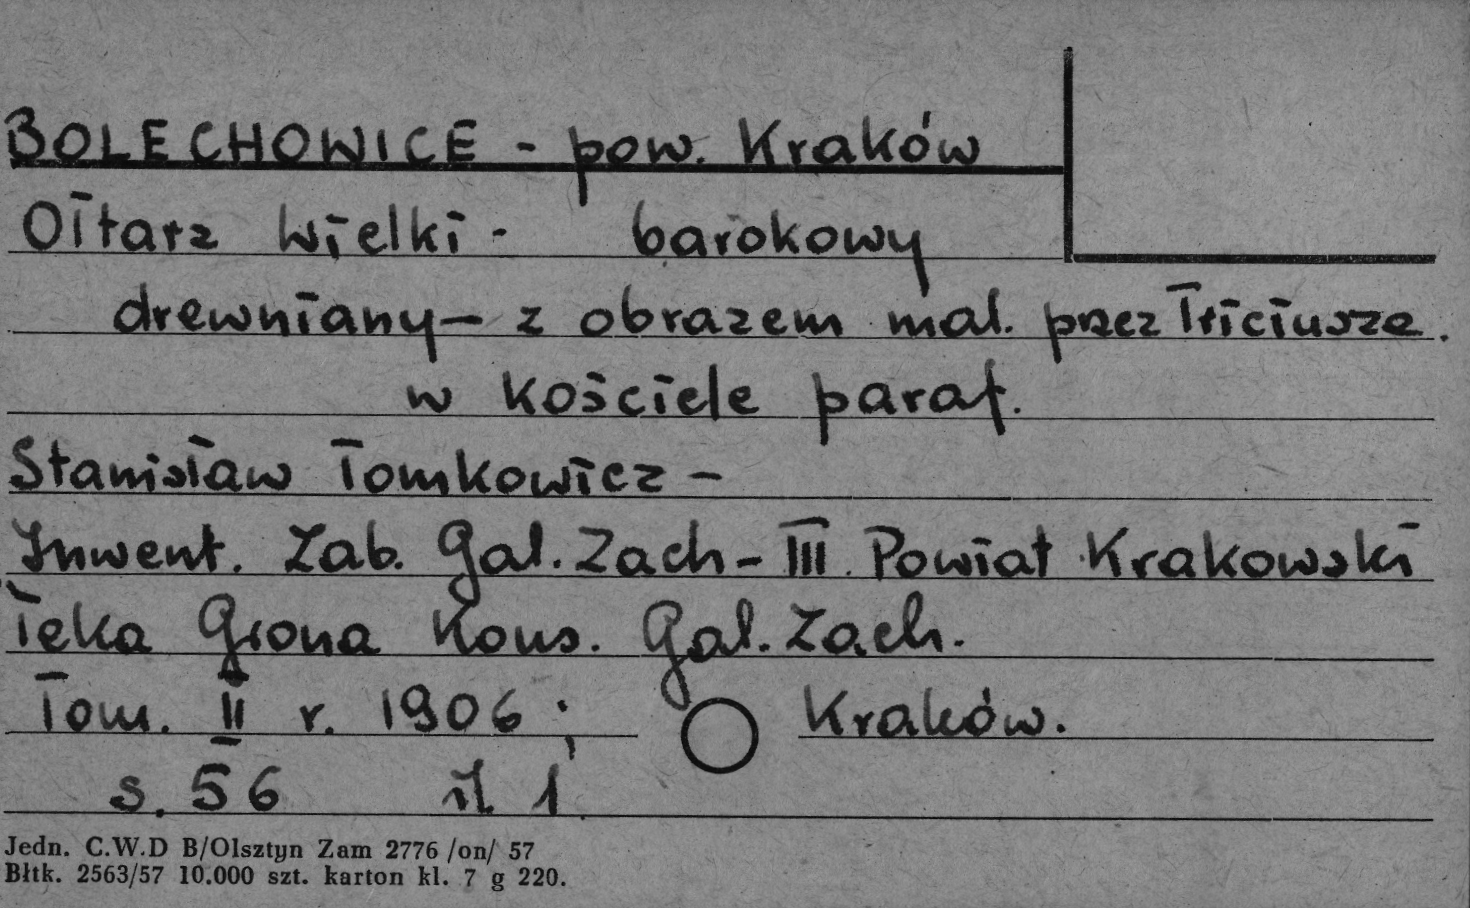 BOLECHOWICE - pow. Kraków
Ołtarz Wielki - barokowy
drewniany - z obrazem mal. przez Triciusze.
w kościele paraf.
Stanisław Tomkowicz -
Inwent. Zab. Gal. Zach - III. Powiat Krakowski
Teka Grona Kons. Gal. Zach.
Tom. II r. 1906; Kraków.
s. 56 il 1
Jedn. C.W.D B/Olsztyn Zam 2776 /on/ 57
Błtk. 2563/57 10.000 szt. karton kl. 7 g 220.